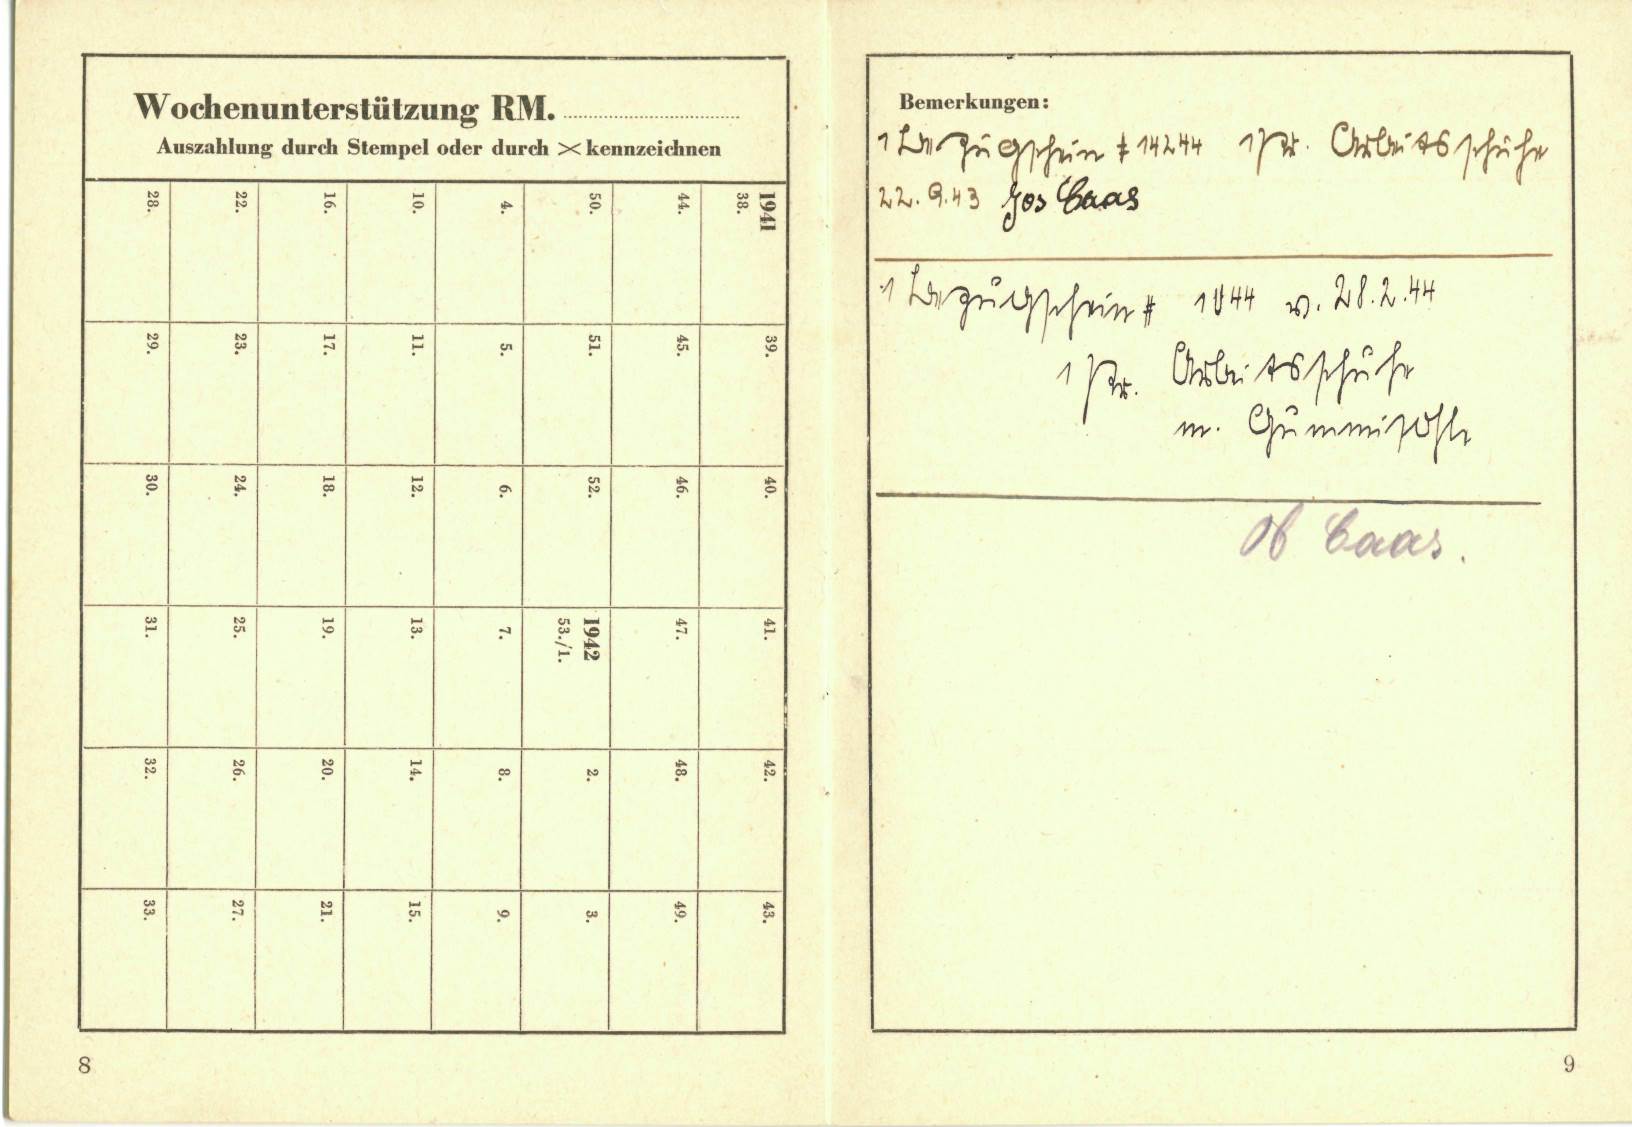 Wochenunterstützung RM.
Auszahlung durch Stempel oder durch × kennzeichnen
28. 22. 16. 10. 4. 50. 44. 1941 38.
29. 23. 17. 11. 5. 51. 45. 39.
30. 24. 18. 12. 6. 52. 46. 40.
31. 25. 19. 13. 7. 1942 53./1. 47. 41.
32. 26. 20. 14. 8. 2. 48. 42.
33. 27. 21. 15. 9. 3. 49. 43.
8
Bemerkungen:
1 Bezugschein # 14244 1 Pr. Arbeitsschuhe
22.9.43 Jos Caas
1 Bezugschein # 1044 v. 28.2.44
1 Pr. Arbeitsschuhe
m. Gummisohle
Caas.
9